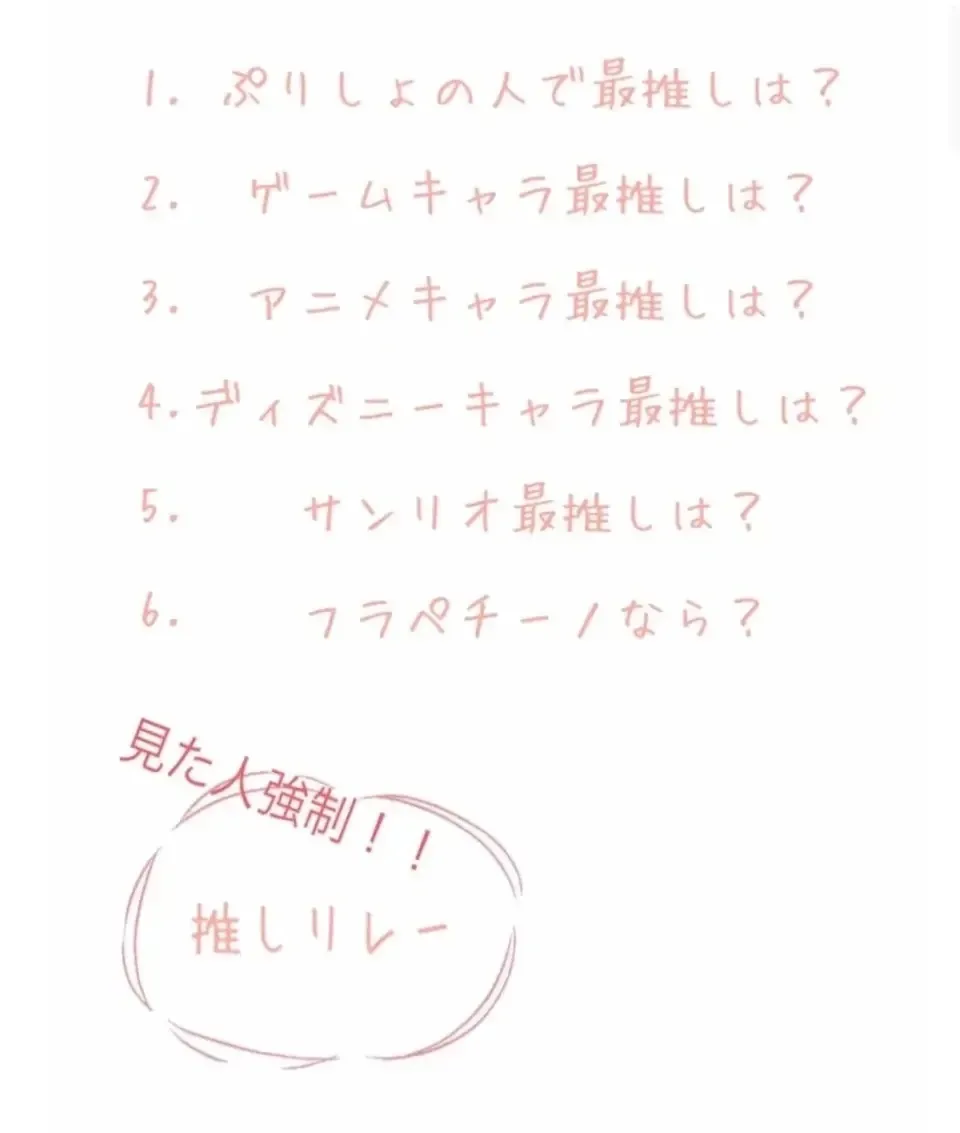 1. ぷりしょの人で最推しは?
2. ゲームキャラ最推しは?
3. アニメキャラ最推しは?
4.ディズニーキャラ最推しは?
5. サンリオ最推しは?
6. フラペチーノなら?
見た人強制!!
推しリレー